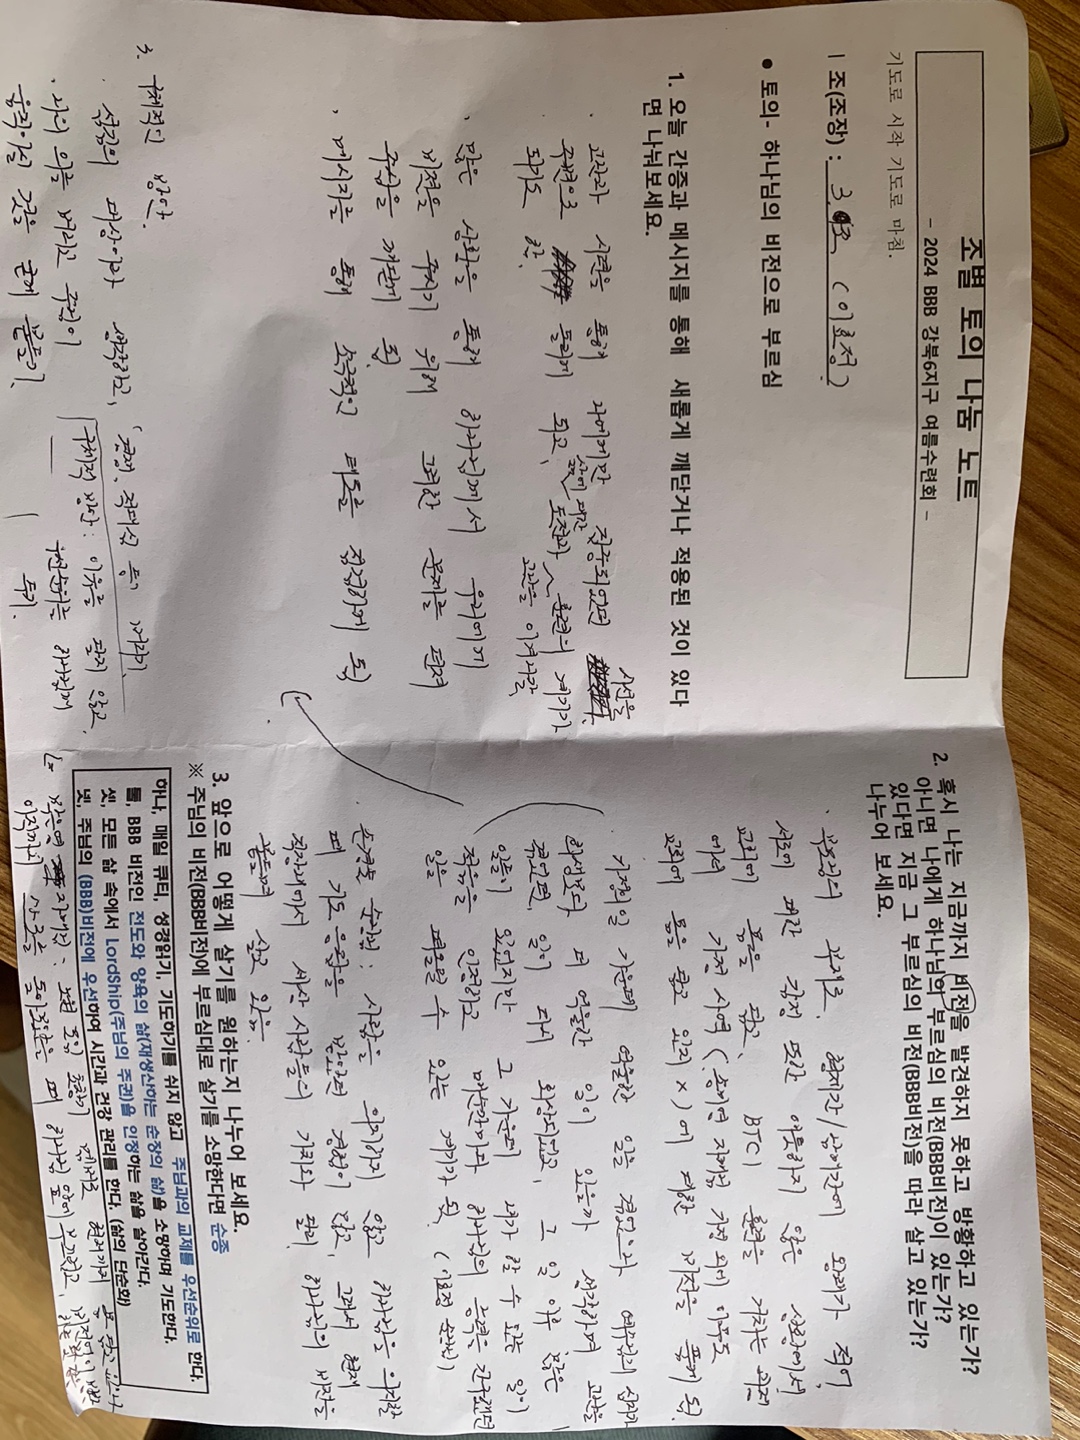 조별 토의 나눔 노트
- 2024 BBB 강북6지구 여름수련회 -
기도로 시작 기도로 마침.
조(조장) : 3. 조 (이효정)
● 토의- 하나님의 비전으로 부르심
1. 오늘 간증과 메시지를 통해 새롭게 깨닫거나 적용된 것이 있다
면 나눠보세요.
· 고난과 시련을 통해 나에게만 집중되었던 시선을
주변으로 돌리게 되고, 삶에 대한 도전과 훈련의 계기가
되기도 함. 고난을 이겨나갈
· 많은 상황을 통해 하나님께서 우리에게
비전을 주시기 위해 그러한 문제를 던져
주심을 깨닫게 됨.
· 메시지를 통해 소극적인 태도를 점검하게 됨
3. 구체적인 방안.
· 섬김의 대상이라 생각하고, 경쟁, 적대심 등 버리기.
· 나의 의를 버리고 주님이
움직이실 것을 굳게 붙들기.
구체적 방안 : 이유를 달지 않고,
우선순위를 하나님께
두기.
2. 혹시 나는 지금까지 비전을 발견하지 못하고 방황하고 있는가?
아니면 나에게 하나님의 부르심의 비전(BBB비전)이 있는가?
있다면 지금 그 부르심의 비전(BBB비전)을 따라 살고 있는가?
나누어 보세요.
· 부모님의 부재로, 형제간/남매간에 왕래가 적어
서로에 대한 감정 또한 애틋하지 않은 상황에서
교회에 몸을 담고, BTC 훈련을 거치는 과정
에서 가정 사역 ( 자매님 가정 외에 아무도
교회에 몸을 담고 있지 x) 에 대한 비전을 품게 됨.
· 가정의 일 가운데 억울한 일을 겪었으나 예수님의 십자가
희생보다 더 억울한 일이 있을까 생각하며 고난을
겪었던 일이 다시 회상되었고, 그 일 이후 많은
일들이 있었지만 그 가운데 내가 할 수 있는 일이
적음을 인정하고 매순간마다 하나님의 능력을 간구했던
일을 떠올릴 수 있는 계기가 됨. (이효정 순장님)
· 순장님 : 사람을 의지하지 않고 하나님을 의지할
때 기도 응답을 받았던 경험이 많고, 그래서 현재
직장내에서 세상 사람들의 가치와 달리 하나님의 비전을
붙들며 살고 있음.
3. 앞으로 어떻게 살기를 원하는지 나누어 보세요.
※ 주님의 비전(BBB비전)에 부르심대로 살기를 소망한다면 순종
하나, 매일 큐티, 성경읽기, 기도하기를 쉬지 않고 주님과의 교제를 우선순위로 한다.
둘, BBB 비전인 전도와 양육의 삶(재생산하는 순장의 삶)을 소망하며 기도한다.
셋, 모든 삶 속에서 LordShip(주님의 주권)을 인정하는 삶을 살아간다.
넷, 주님의 (BBB)비전에 우선하여 시간과 건강 관리를 한다. (삶의 단순화)
자매님 : 노원 모임 초창기 멤버로 현재까지 몸 담고
이직까지 돌아보았을 때 하나님 앞에 부끄럽고, 비전없이